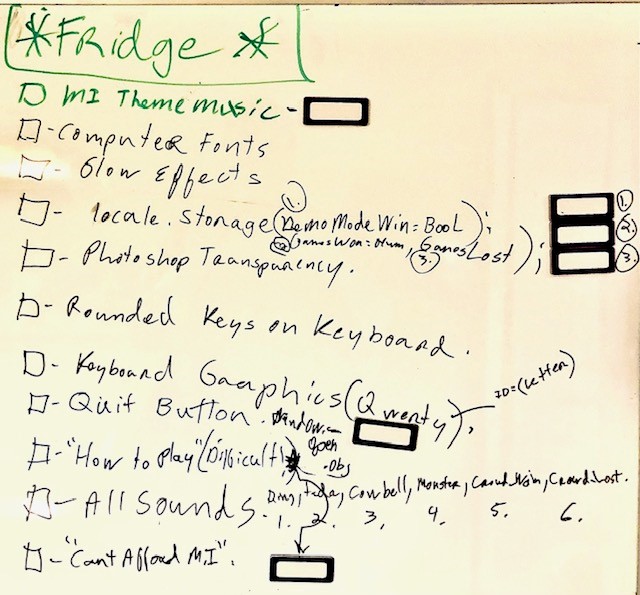 *Fridge*
MI Theme Music -
- Computer Fonts
- Glow Effects
1.
- locale.storage(DemoModeWin=Bool); 1.
2. GamesWon=Num, GamesLost); 2.
- Photoshop Transparency. 3. 3.
- Rounded Keys on Keyboard.
- Keyboard Graphics(Qwerty); ID=(letter)
- Quit Button. Window.
open
- "How to Play" (Difficult) .Obj
- All Sounds - Ding, tada, Cowbell, Monster, Crowd_Win, Crowd_Lost.
1. 2. 3, 4, 5. 6.
- "Cant Afford M.I".